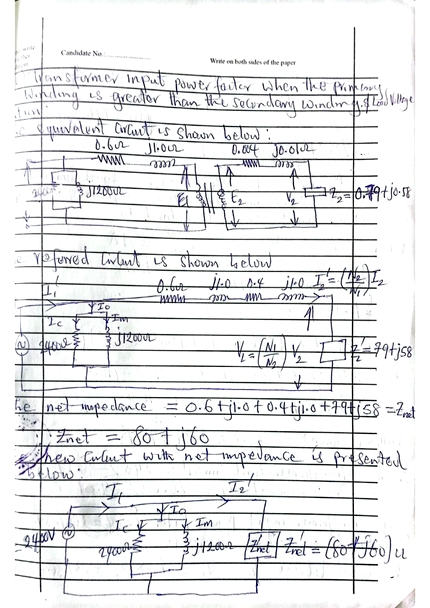 Candidate No
Write on both sides of the paper
Transformer input power factor when the primary
winding is greater than the secondary winding.
Load Voltage
Equivalent Circuit is shown below:
0.6Ω j1.0Ω 0.004 j0.01Ω
j1200Ω E1 E2 V2 Z2 = 0.79+j0.58
referred Circuit is shown below
I1' 0.6Ω j1.0 0.4 j1.0 I2' = (N2/N1) I2
Io
Ic Im
2400Ω j1200Ω V2' = (N1/N2) V2 Z2' = 79+j58
The net impedance = 0.6+j1.0+0.4+j1.0+79+j58 = Znet
∴ Znet = 80+j60
New Circuit with net impedance is presented
below:
I1 I2'
Io
Ic Im
2400V 2400Ω j1200Ω Znet' Znet' = (80+j60)Ω